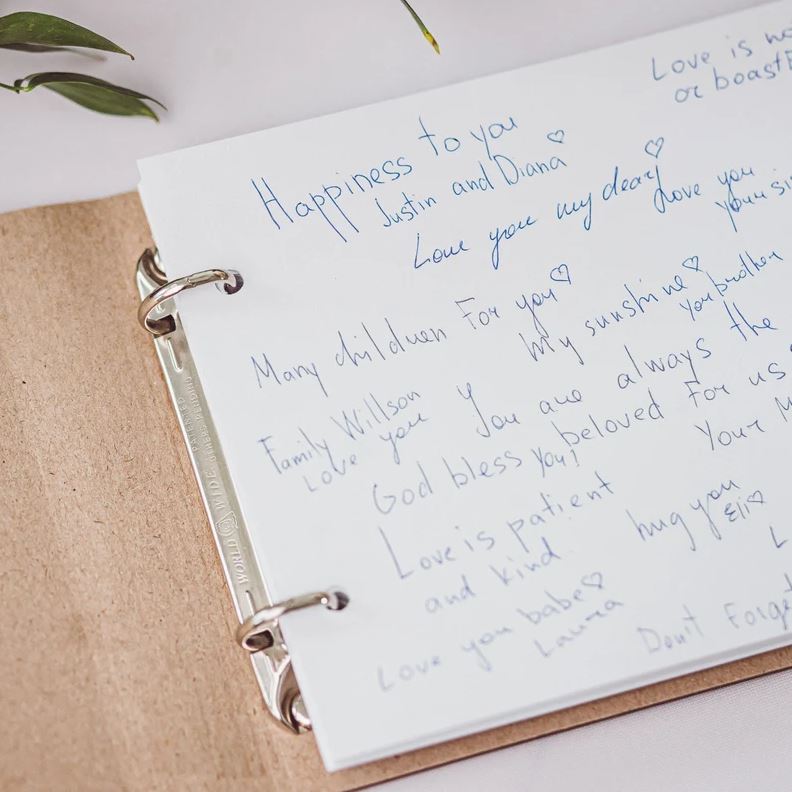 Love is
or boast
Happiness to you
Justin and Diana
Love you my dear!
Love you
your
Many children For you
My sunshine
your brother
Family Willson
Love you
You are always the
beloved For us
God bless you!
Your
Love is patient
and kind
hug you
Elio
Love you babe
Laura
Don't Forget
WORLD WIDE